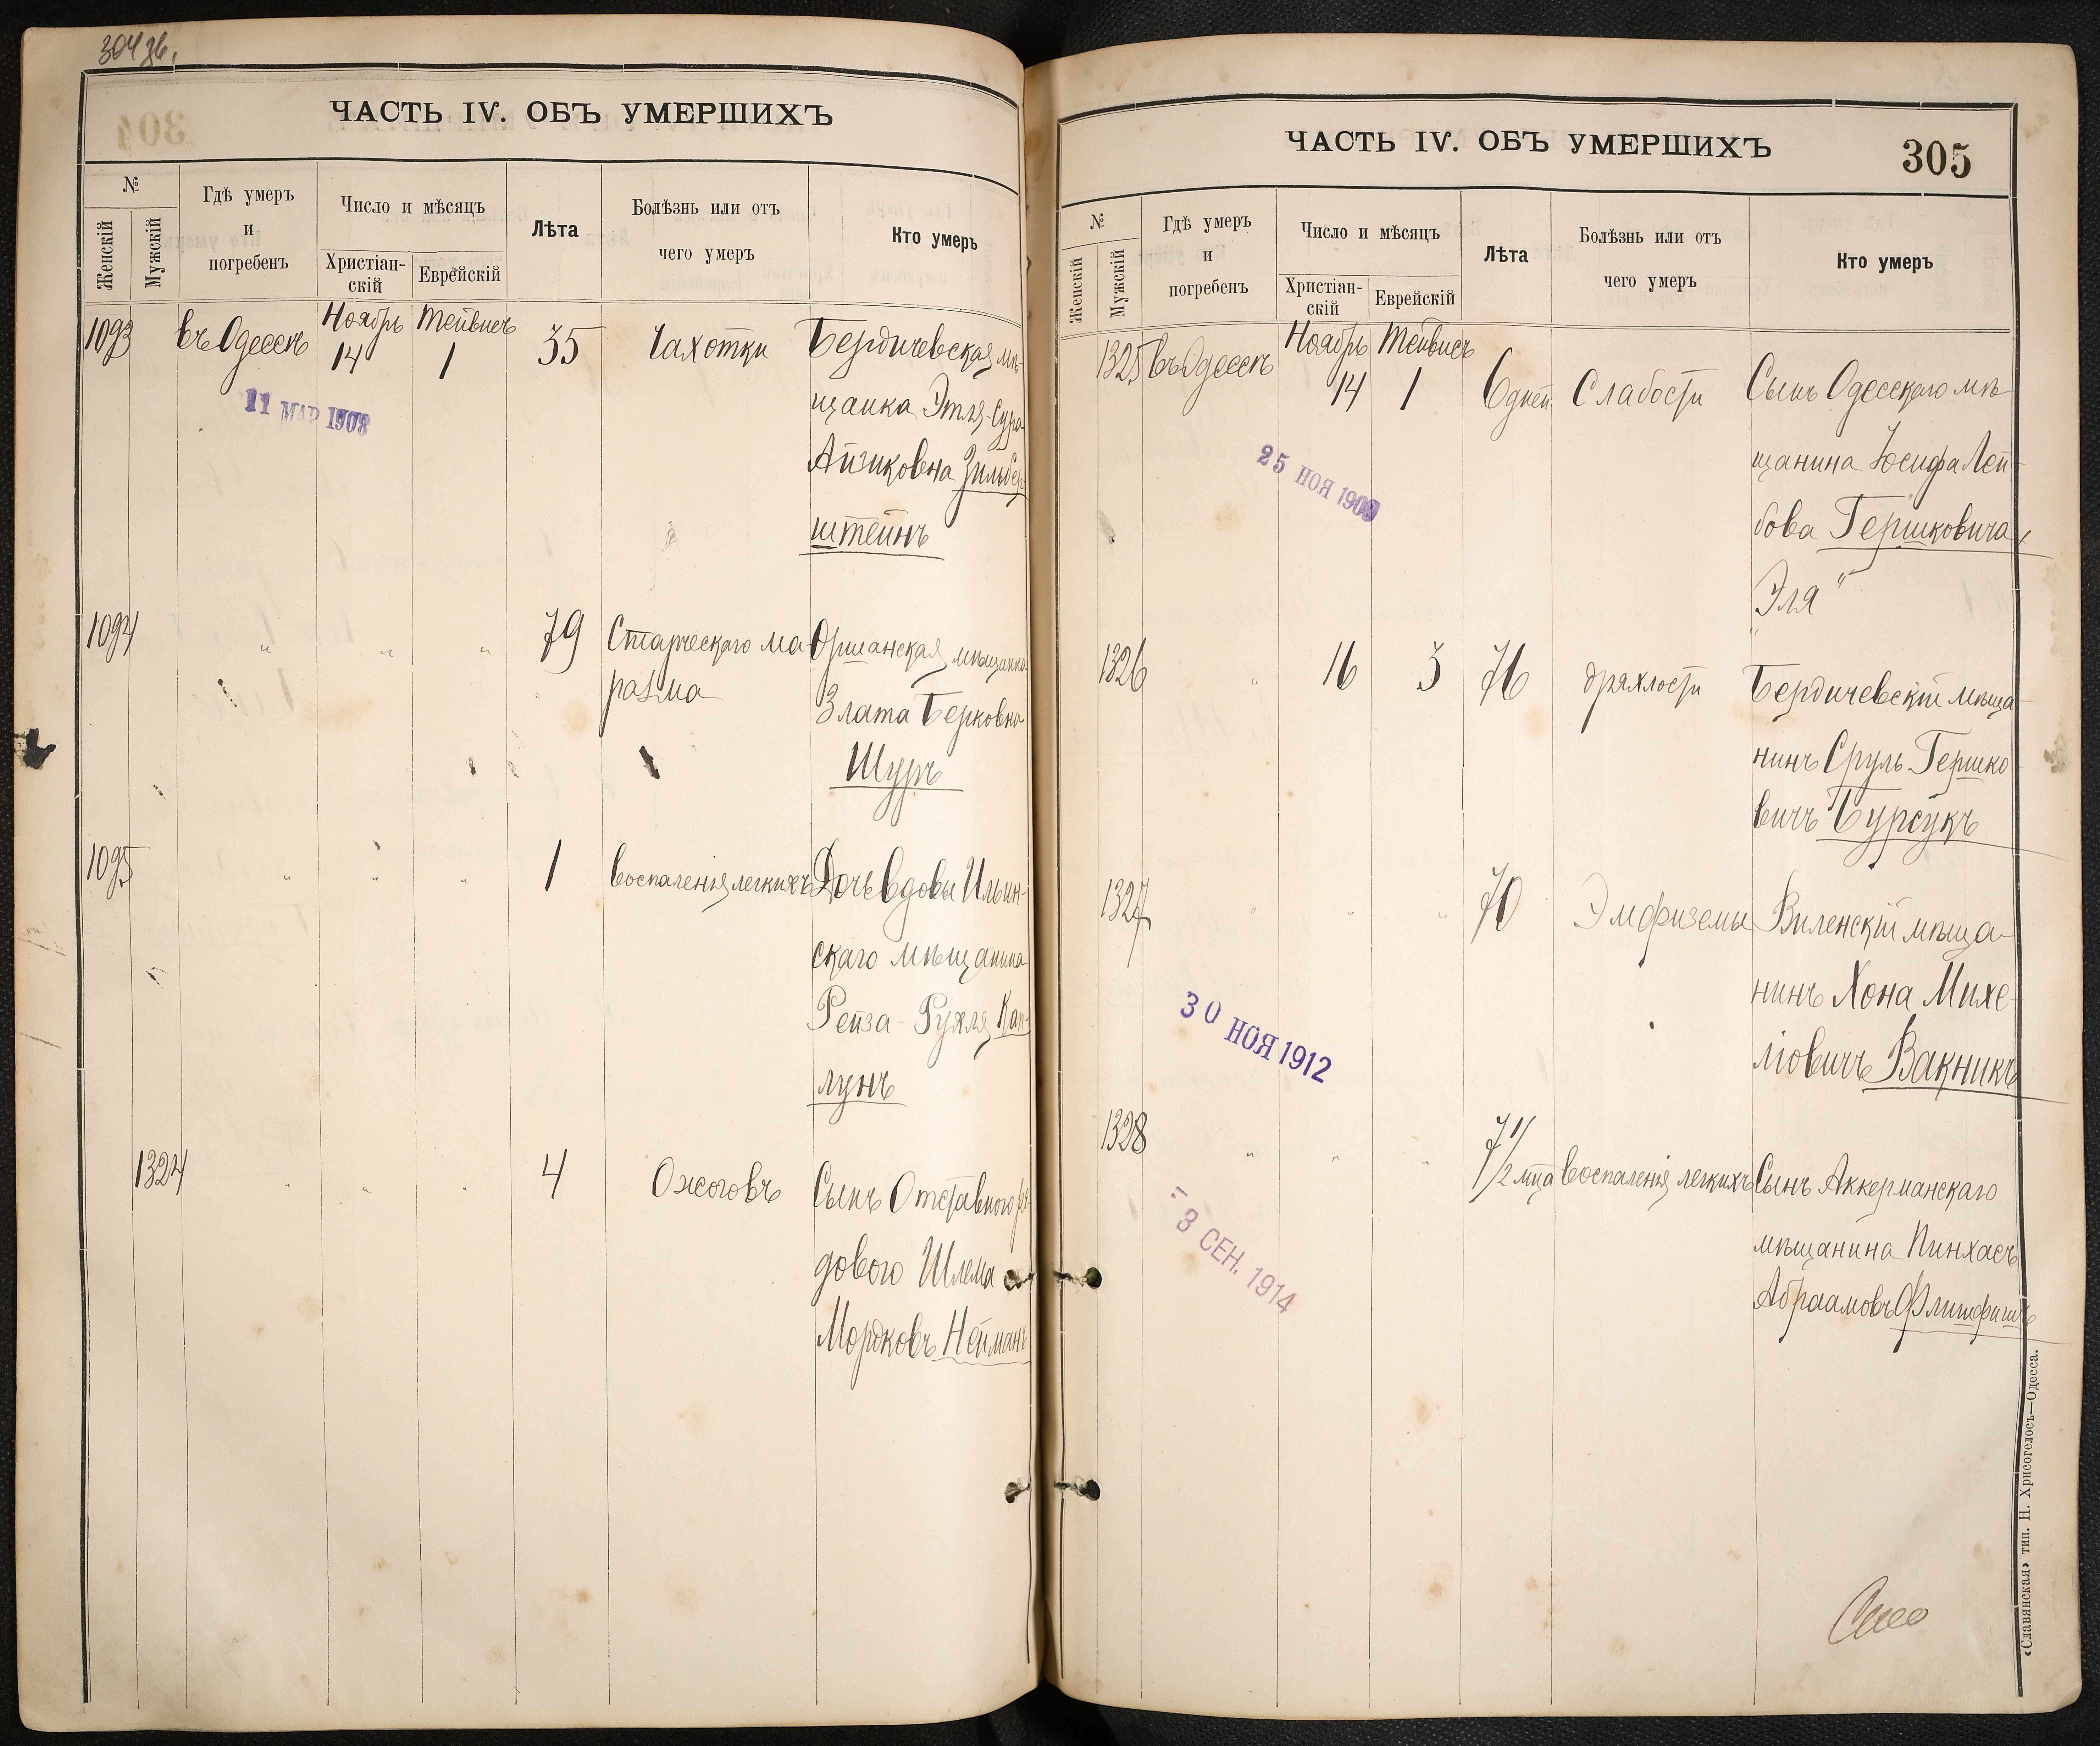 304 зв.
ЧАСТЬ IV. ОБЪ УМЕРШИХЪ
№
Женскій
Мужскій
Гдѣ умеръ
и
погребенъ
Число и мѣсяцъ
Христіан-
скій
Еврейскій
Лѣта
Болѣзнь или отъ
чего умеръ
Кто умеръ
1093 въ Одессѣ Ноябрь 14 Тейвисъ 1 35 Чахотки Бердичевская мѣ-
щанка Этля-Сура
Айзиковна Зильбер-
штейнъ
11 МАР 1908
1094 " " " 79 Старческаго ма- Оршанская мѣщанка
разма Злата Берковна
Шуръ
1095 " " " 1 воспаленія легкихъ Дочь вдовы Ильин-
скаго мѣщанина
Рейза-Рухля Кап-
лунъ
1324 " " " 4 Ожоговъ Сынъ Отставного ря-
дового Шлема
Мордковъ Нейманъ
ЧАСТЬ IV. ОБЪ УМЕРШИХЪ
305
№
Женскій
Мужскій
Гдѣ умеръ
и
погребенъ
Число и мѣсяцъ
Христіан-
скій
Еврейскій
Лѣта
Болѣзнь или отъ
чего умеръ
Кто умеръ
1325 въ Одессѣ Ноябрь 14 Тейвисъ 1 6 дней Слабости Сынъ Одесскаго мѣ-
щанина Іосифа Лей-
бова Гершковича,
Эля"
25 НОЯ 1909
1326 " 16 3 76 дряхлости Бердичевскій мѣща-
нинъ Сруль Гершко-
вичъ Бурсукъ
1327 " " " 70 Эмфиземы Виленскій мѣща-
нинъ Хона Михе-
ліовичъ Вакникъ
30 НОЯ 1912
1328 " " " 7 1/2 мца воспаленія легкихъ Сынъ Аккерманскаго
мѣщанина Пинхасъ
Абрамовъ
- 3 СЕН. 1914
«Славянская» тип. Н. Хрисогелосъ—Одесса.